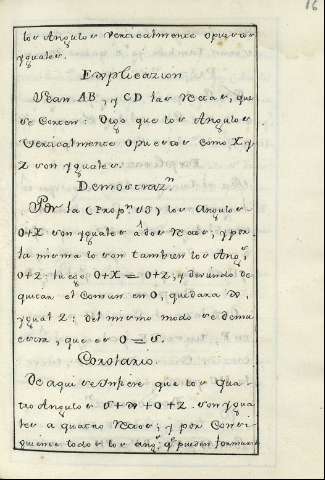 16
los Angulos verticalmente opuestos
yguales.
Explicazion
Sean AB, y CD las Rectas, que
se Corten: Digo que los Angulos
Verticalmente opuestos como X y
Z son yguales.
Demostraz.n
Por la (Prop.n 13) los Angulos
O+X son yguales á dos Rectos; y por
la misma lo son tambien los Ang.s
O+Z: luego O+X = O+Z; y
quitan el Comun en O, quedara X,
ygual Z: del mismo modo se demu
estra, que es O = S.
Corolario.
De aqui se Infiere que los qua-
tro Angulos S+X+O+Z. son ygua
les a quatro Rectos; y por Consi-
guiente todos los ang.s q.e pueden formarse